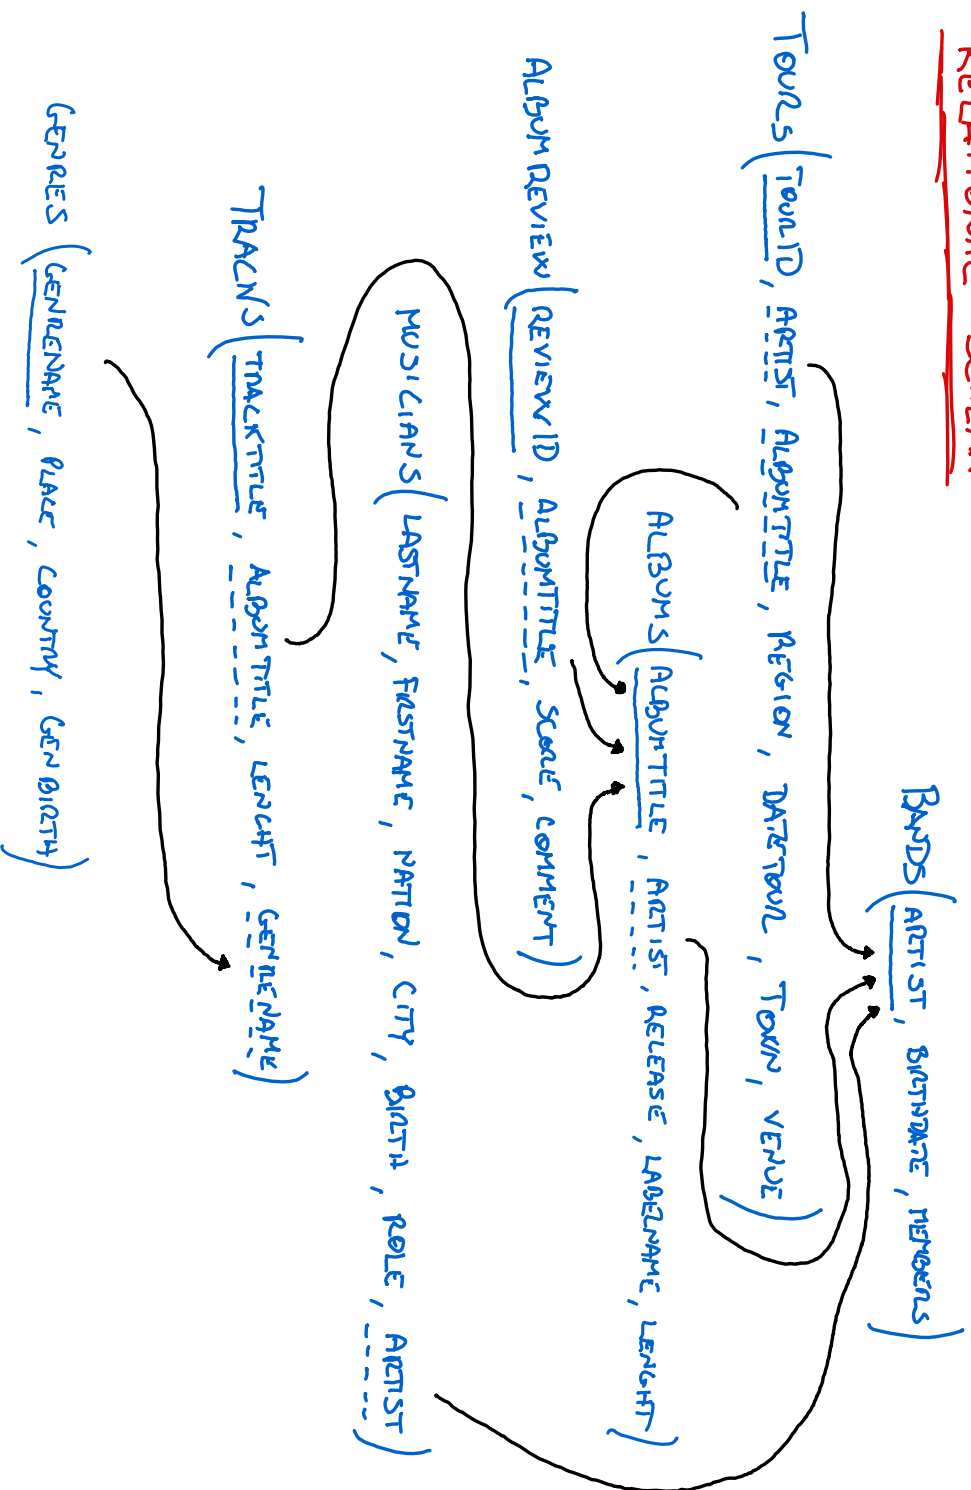 RELATIONAL SCHEMA
BANDS (ARTIST, BIRTHDATE, MEMBERS)
TOURS (TOURID, ARTIST, ALBUMTITLE, REGION, DATETOUR, TOWN, VENUE)
ALBUMS (ALBUMTITLE, ARTIST, RELEASE, LABELNAME, LENGHT)
ALBUMREVIEW (REVIEWID, ALBUMTITLE, SCORE, COMMENT)
MUSICIANS (LASTNAME, FIRSTNAME, NATION, CITY, BIRTH, ROLE, ARTIST)
TRACKS (TRACKTITLE, ALBUMTITLE, LENGHT, GENRENAME)
GENRES (GENRENAME, PLACE, COUNTRY, GENBIRTH)